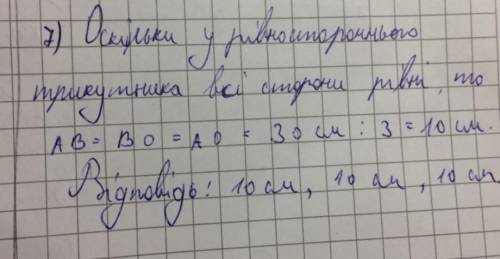 7) Оскільки у рівностороннього
трикутника всі сторони рівні, то
AB = BO = AO = 30 см : 3 = 10 см.
Відповідь: 10 см, 10 см, 10 см